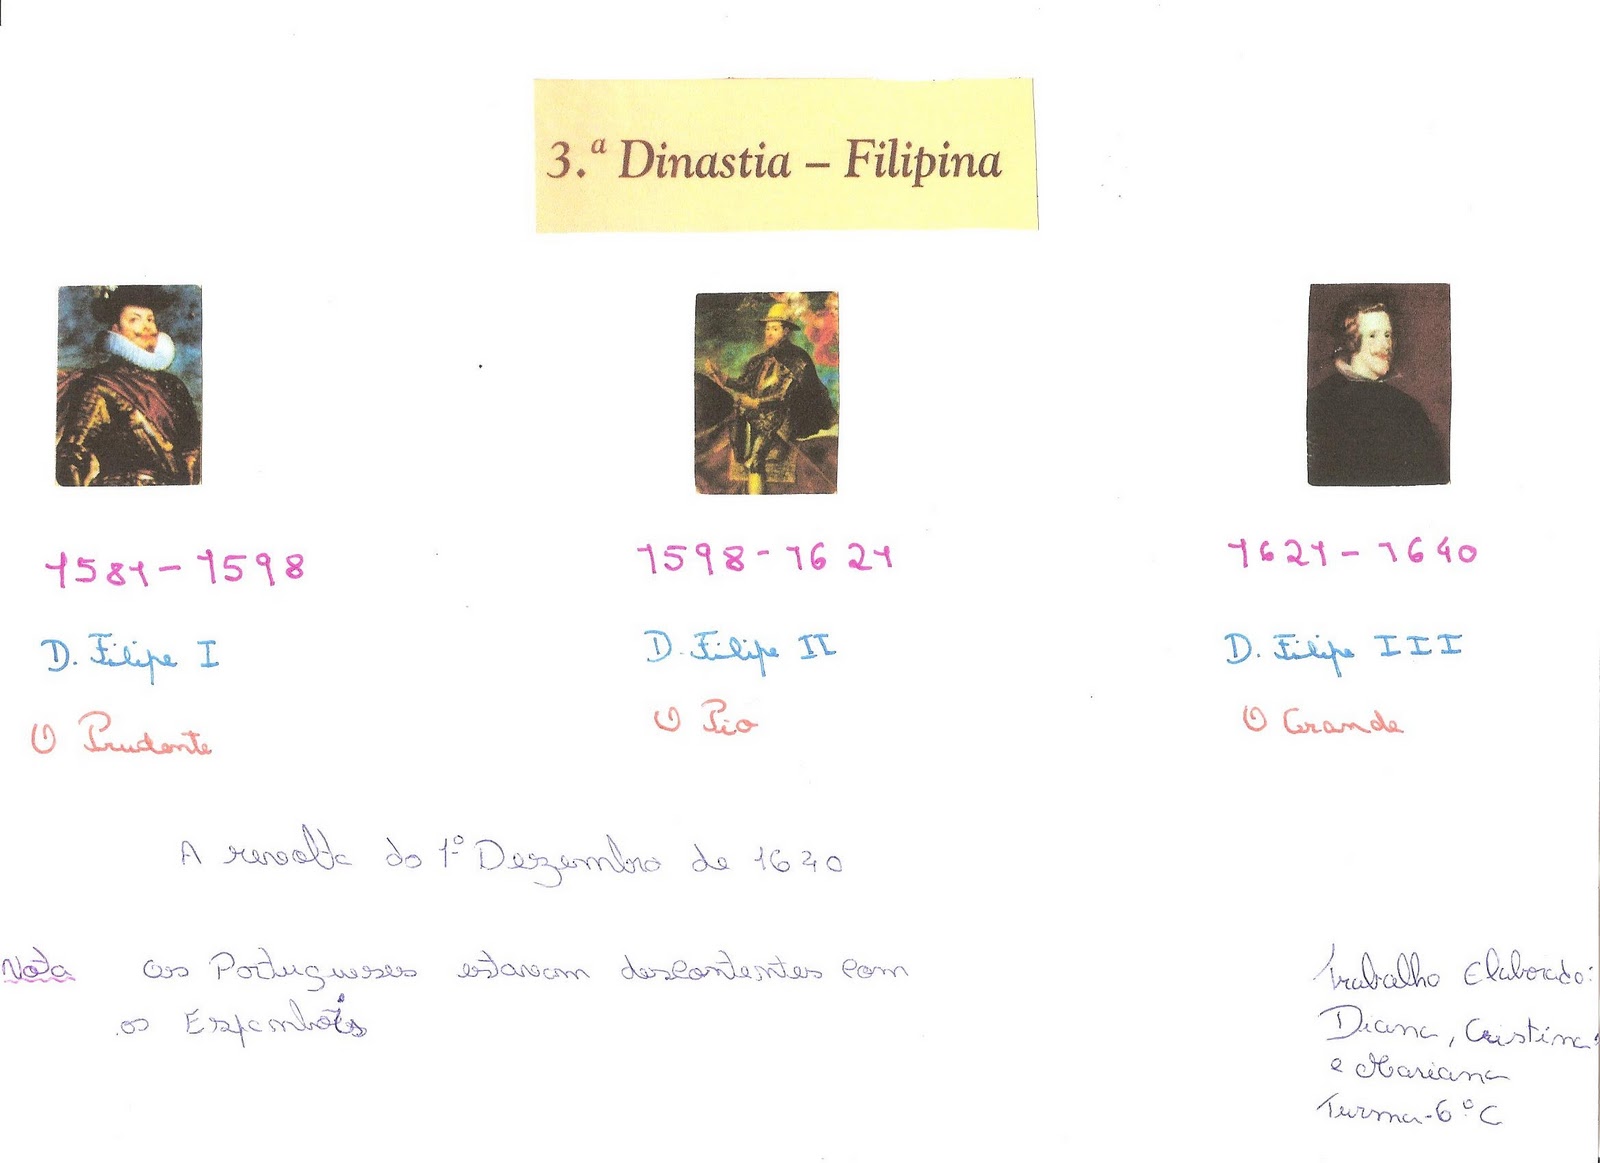 3.ª Dinastia – Filipina
1581 – 1598
1598 - 1621
1621 – 1640
D. Filipe I
D. Filipe II
D. Filipe III
O Prudente
O Pio
O Grande
A revolta do 1º Dezembro de 1640
Nota os Portugueses estavam descontentes com
os Espanhóis
Trabalho Elaborado:
Diana, Cristina
e Mariana
Turma - 6º C